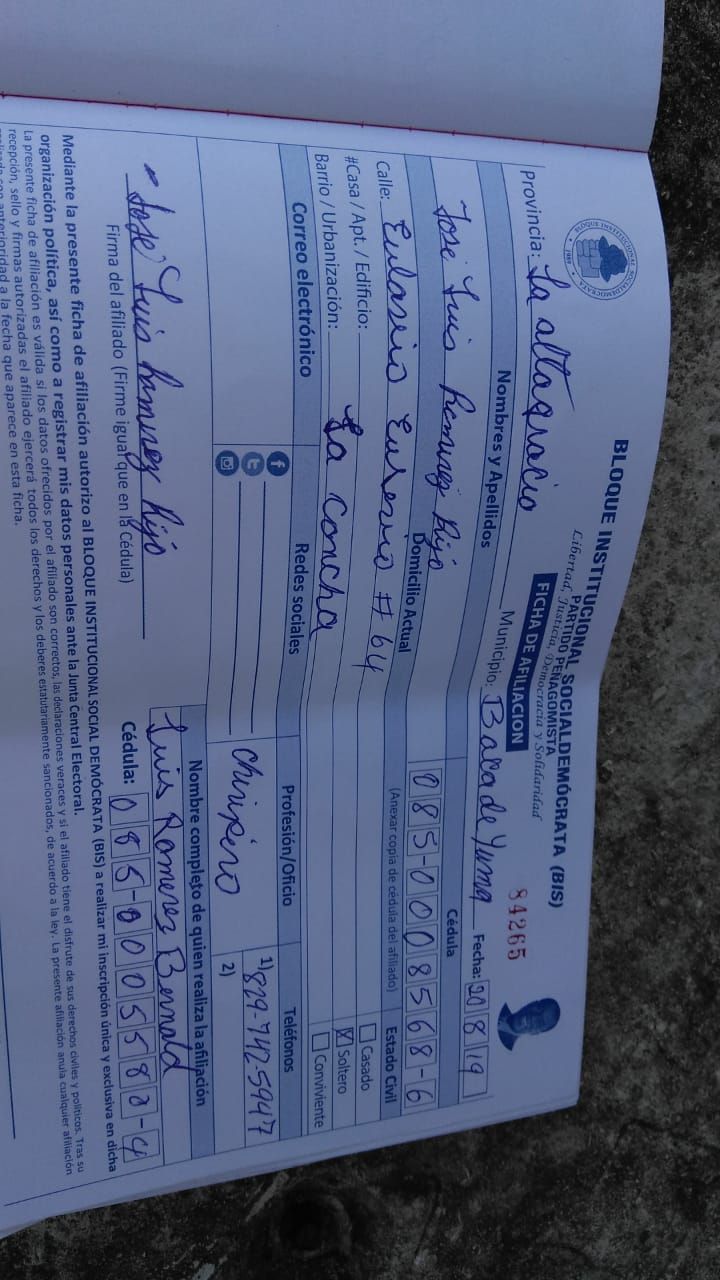 BLOQUE INSTITUCIONAL SOCIALDEMÓCRATA (BIS)
PARTIDO PEÑAGOMISTA
Libertad, Justicia, Democracia y Solidaridad
FICHA DE AFILIACIÓN
84265
Provincia: La altagracia Municipio: Boca de Yuma Fecha: 20 8 19
Nombres y Apellidos Cédula
José Luis Ramirez Rijo 085-0008568-6
Domicilio Actual (Anexar copia de cédula del afiliado) Estado Civil
Calle: Eulasio Eusevio # 64 Casado
#Casa / Apt. / Edificio: X Soltero
Barrio / Urbanización: La Concha Conviviente
Correo electrónico Redes sociales Profesión/Oficio Teléfonos
Chiripero 1) 829-742-5947
2)
Nombre completo de quien realiza la afiliación
José Luis Ramirez Rijo Luis Rameres Bernald
Firma del afiliado (Firme igual que en la Cédula) Cédula:
Mediante la presente ficha de afiliación autorizo al BLOQUE INSTITUCIONAL SOCIAL DEMÓCRATA (BIS) a realizar mi inscripción única y exclusiva en dicha
organización política, así como a registrar mis datos personales ante la Junta Central Electoral.
La presente ficha de afiliación es válida si los datos ofrecidos por el afiliado son correctos, las declaraciones veraces y si el afiliado tiene el disfrute de sus derechos civiles y políticos. Tras su
recepción, sello y firmas autorizadas el afiliado ejercerá todos los derechos y los deberes estatutariamente sancionados, de acuerdo a la ley. La presente afiliación anula cualquier afiliación
realizada con anterioridad a la fecha que aparece en esta ficha.